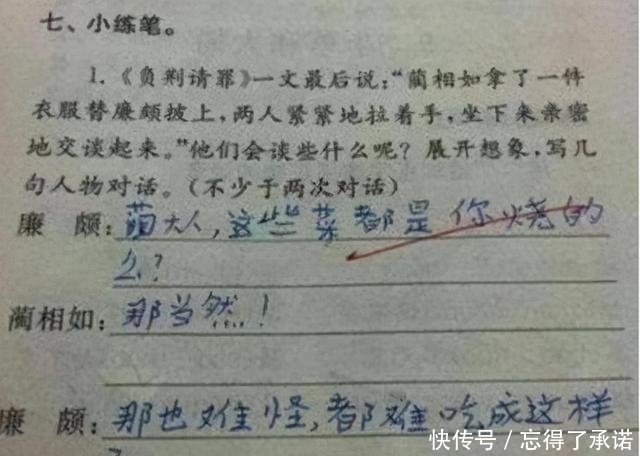 七、小练笔。
1.《负荆请罪》一文最后说:“蔺相如拿了一件
衣服替廉颇披上,两人紧紧地拉着手,坐下来亲密
地交谈起来。”他们会谈些什么呢?展开想象,写几
句人物对话。(不少于两次对话)
廉 颇:蔺大人,这些菜都是你烧的
么?
蔺相如:那当然!
廉 颇:那也难怪,都难吃成这样
快传号/忘得了承诺